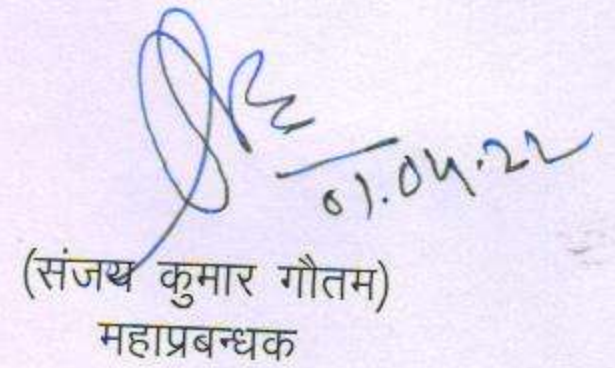 01.04.22
(संजय कुमार गौतम)
महाप्रबन्धक